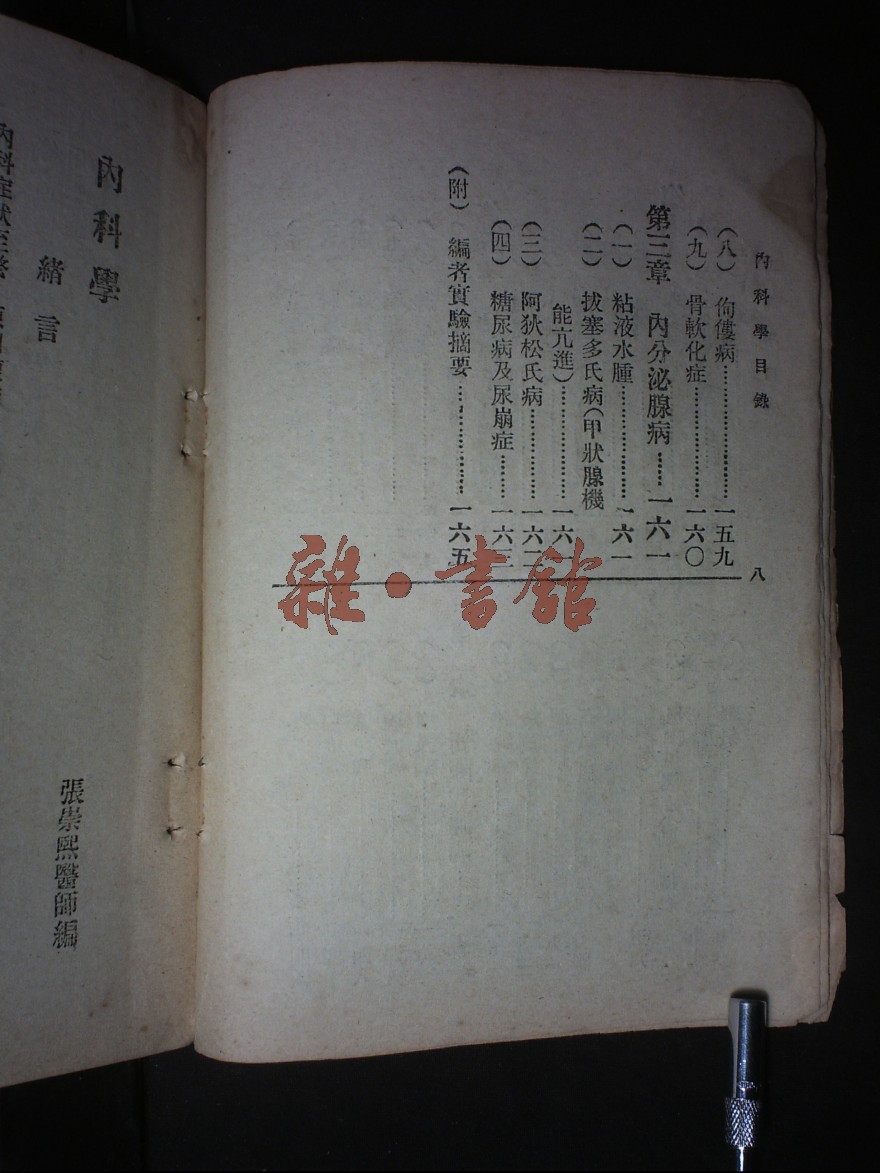 內科學目錄
八
(八) 佝僂病………………一五九
(九) 骨軟化症………………一六〇
第三章 內分泌腺病……一六一
(一) 粘液水腫………………一六一
(二) 拔塞多氏病(甲狀腺機
能亢進)………………一六一
(三) 阿狄松氏病………………一六二
(四) 糖尿病及尿崩症…………一六三
(附) 編者實驗摘要……………一六五
雜·書館
內科學
緒言
張崇熙醫師編
內科症狀至